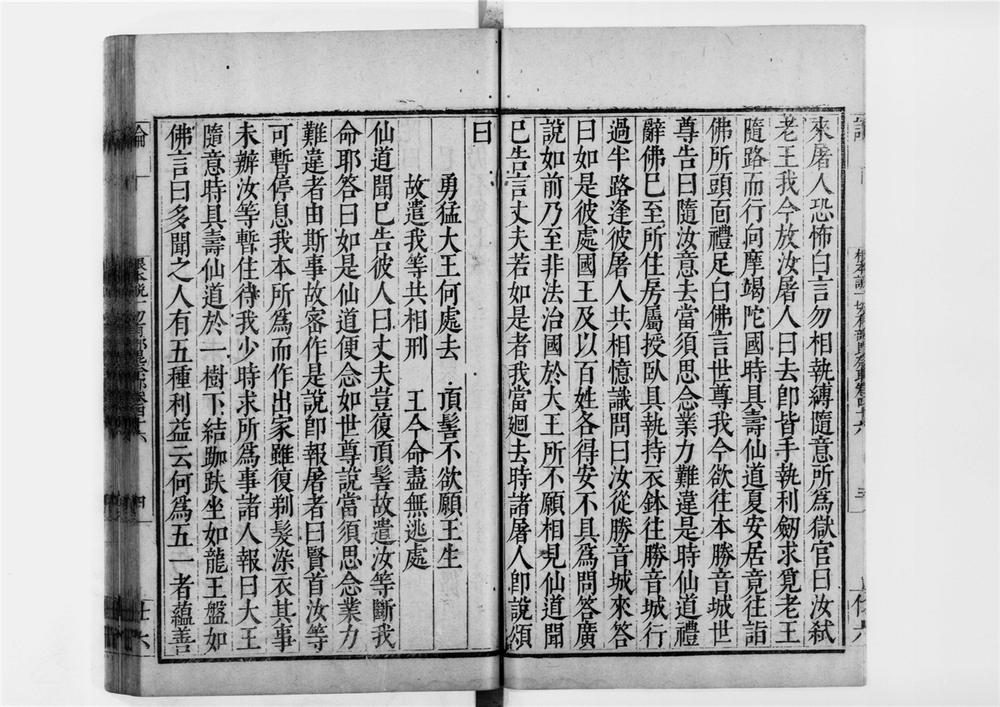 來屠人恐怖白言勿相執縛隨意所爲獄官曰汝弑
老王我今放汝屠人曰去卽皆手執利劒求覓老王
隨路而行向摩竭陀國時具壽仙道夏安居竟往詣
佛所頭面禮足白佛言世尊我今欲往本勝音城世
尊告曰隨汝意去當須思念業力難違是時仙道禮
辭佛已至所住房屬授臥具執持衣鉢往勝音城行
過半路逢彼屠人共相憶識問曰汝從勝音城來答
曰如是彼處國王及以百姓各得安不具爲問答廣
說如前乃至非法治國於大王所不願相見仙道聞
已告言丈夫若如是者我當廻去時諸屠人卽說頌
曰
勇猛大王何處去 頂髻不欲願王生
故遣我等共相刑 王今命盡無逃處
仙道聞已告彼人曰丈夫豈復頂髻故遣汝等斷我
命耶答曰如是仙道便念如世尊說當須思念業力
難違者由斯事故密作是說卽報屠者曰賢首汝等
可暫停息我本所爲而作出家雖復剃髮染衣其事
未辦汝等暫住待我少時求所爲事諸人報曰大王
隨意時具壽仙道於一樹下結跏趺坐如龍王盤如
佛言曰多聞之人有五種利益云何爲五一者蘊善